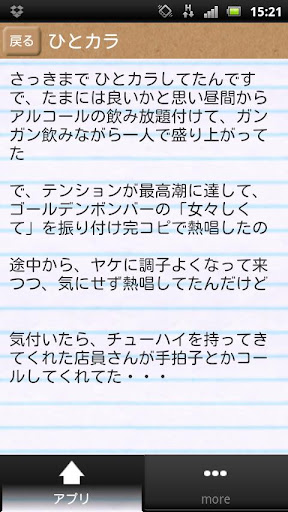 15:21
戻る ひとカラ
さっきまで ひとカラしてたんです
で、たまには良いかと思い昼間から
アルコールの飲み放題付けて、ガン
ガン飲みながら一人で盛り上がって
た
で、テンションが最高潮に達して、
ゴールデンボンバーの「女々しく
て」を振り付け完コピで熱唱したの
途中から、ヤケに調子よくなって来
つつ、気にせず熱唱してたんだけど
気付いたら、チューハイを持ってき
てくれた店員さんが手拍子とかコー
ルしてくれてた・・・
アプリ more